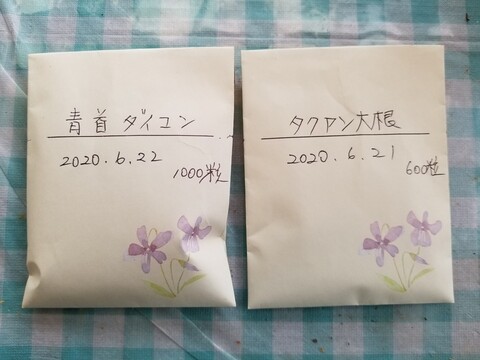 青首ダイコン
2020.6.22
1000粒
タクアン大根
2020.6.21
600粒